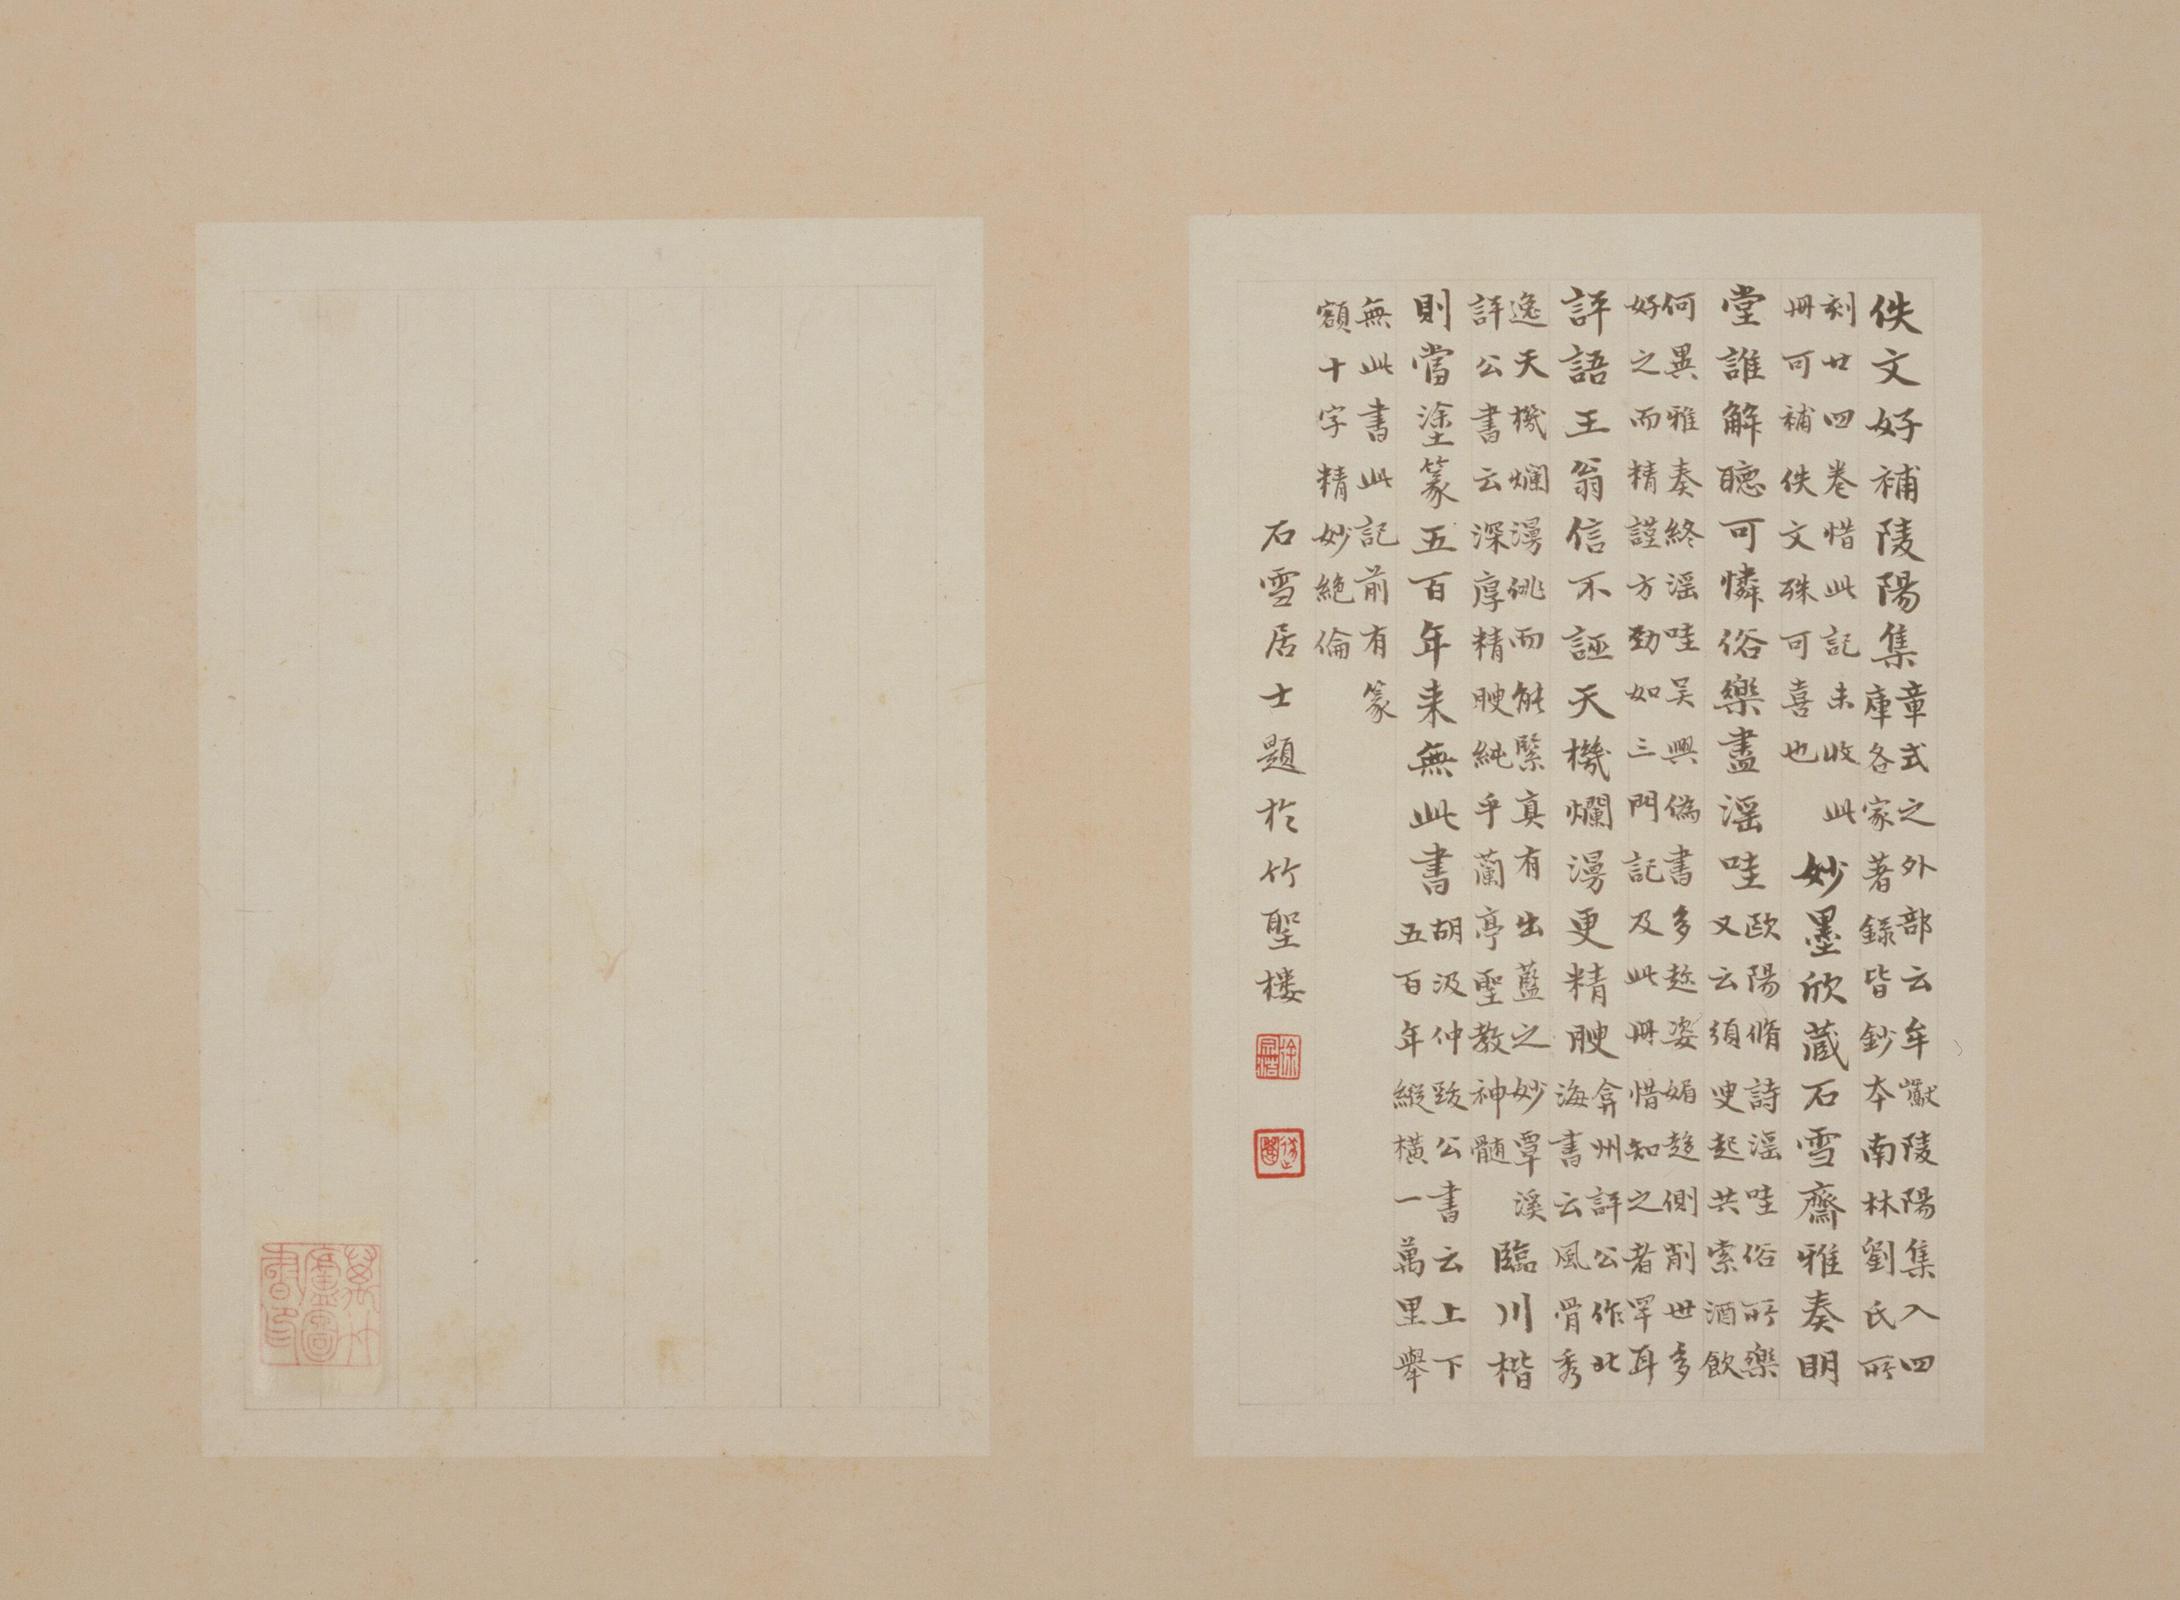 佚文好補陵陽集
章式之外部云牟巘陵陽集入四
庫各家著錄皆鈔本南林劉氏所
刻廿四卷惜此記未收此
冊可補佚文殊可喜也
妙墨欣藏石雪齋雅奏明
堂誰解聽可憐俗樂盡滛哇
歐陽脩詩滛哇俗所樂
又云須臾起共索酒飲
何異雅奏終滛哇吳興偽書多趁姿媚趍側削世多
好之而精謹方勁如三門記及此冊惜知之者罕耳
評語王翁信不誣天機爛漫更精腴
弇州評公作北
海書云風骨秀
逸天機爛漫佻而能緊真有出藍之妙覃溪
評公書云深厚精腴純乎蘭亭聖教神髓
臨川楷
則當塗篆五百年来無此書
胡汲仲跋公書云上下
五百年縱橫一萬里舉
無此書此記前有篆
額十字精妙絕倫
石雪居士題於竹聖樓
徐宗浩
萬竹廬圖書印